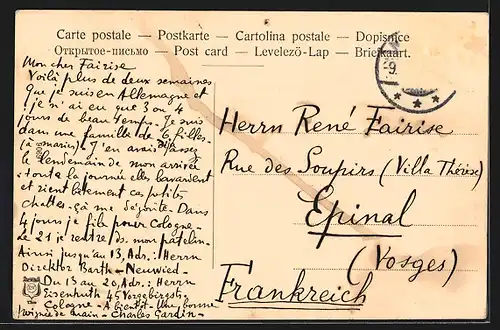 Carte postale — Postkarte — Cartolina postale — Dopisnice
Открытое-письмо — Post card — Levelezö-Lap — Briefkaart.
Mon cher Fairise
Voilà plus de deux semaines
que je suis en Allemagne et
je n'ai eu que 3 ou 4
jours de beau temps. Je suis
dans une famille de 6 filles
(à marier) J'en avais assez
le lendemain de mon arrivée
toute la journée elles bavardent
et rient bêtement ces petites
chattes – ça me dégoûte. Dans
4 jours je file pour Cologne –
Le 21 je rentre ds. mon patelin –
Ainsi jusqu'au 13, Adr. : Herrn
Direktor Barth – Neuwied –
Du 13 au 20, Adr. : Herrn
Eisenhuth 45 Vorgebirgstr.
Cologne – A bientôt – Une bonne
poignée de main – Charles Gardin –
Herrn René Fairise
Rue des Soupirs (Villa Thérèse)
Epinal
(Vosges)
Frankreich